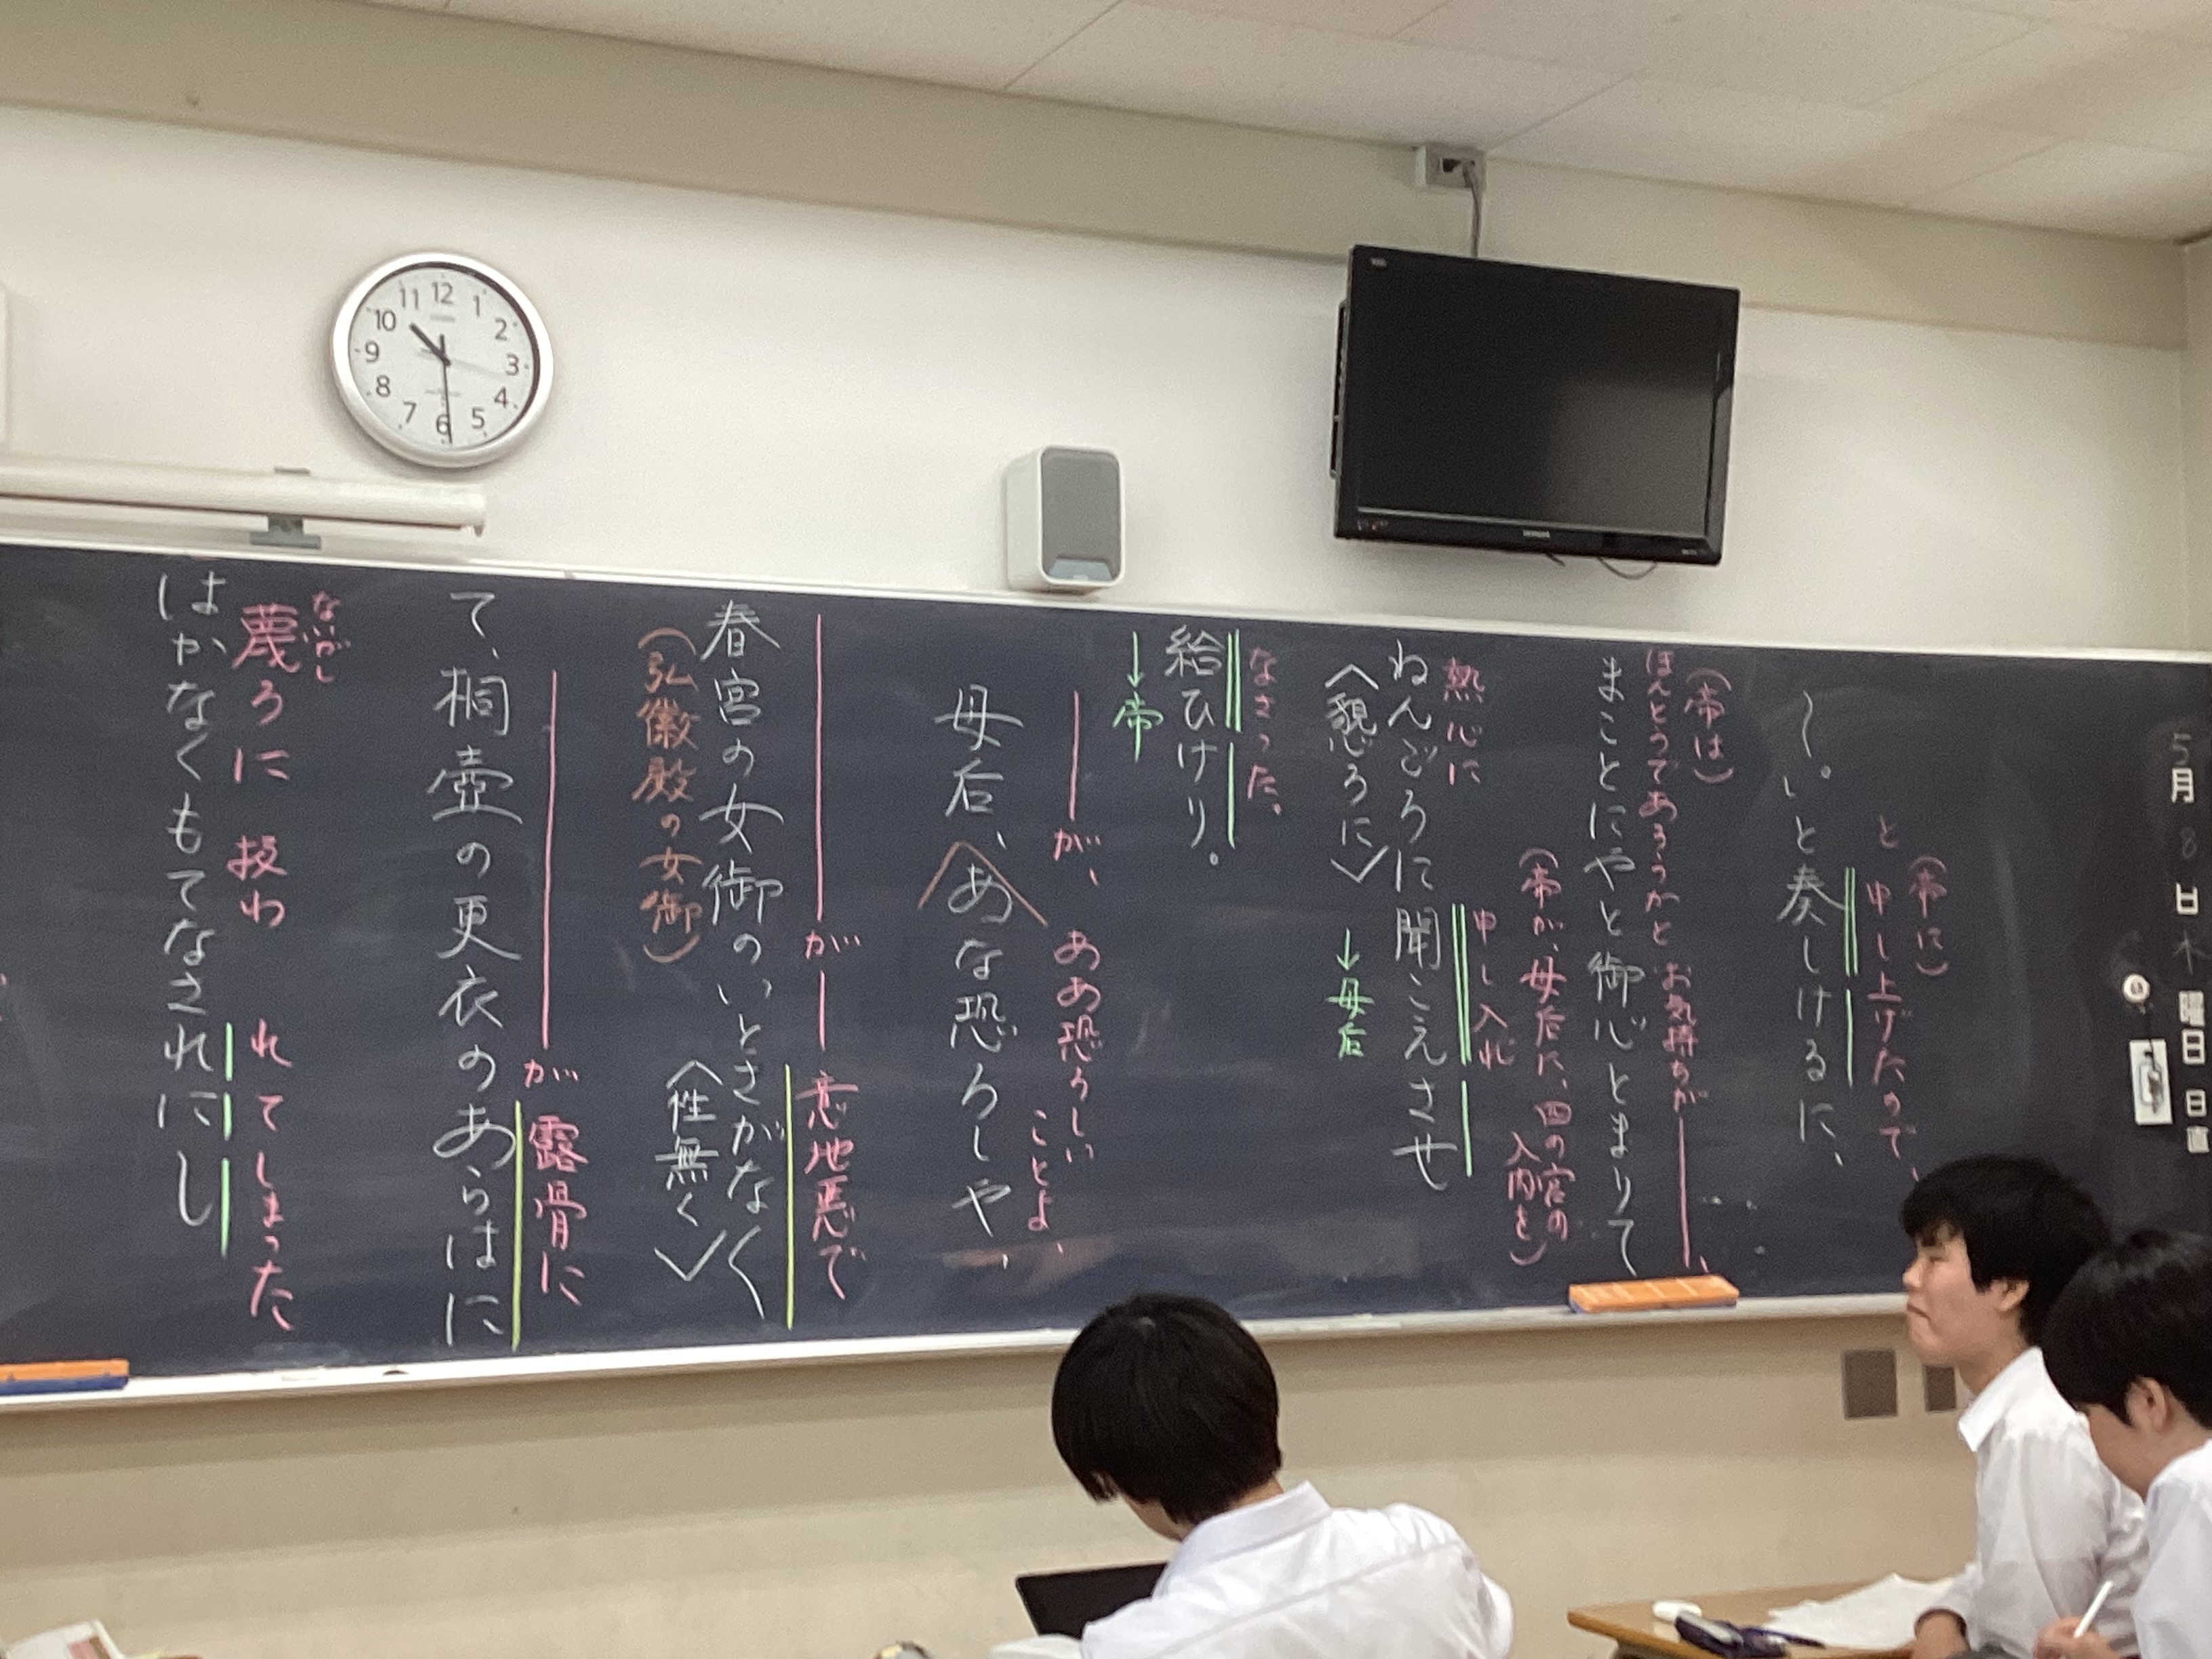 5月8日木曜日 日直
(帝に)
と申し上げたので、
〜。」と奏しけるに、
(帝は)
ほんとうであろうかと お気持ちが
まことにやと御心とまりて
(帝が、母后に、四の宮の
入内を)
熱心に 申し入れ
ねんごろに聞こえさせ
〈懇ろに〉 ↓母后
なさった。
給ひけり。
↓帝
が、 ああ恐ろしい
ことよ、
母后、「あな恐ろしや、
が 意地悪で
春宮の女御のいとさがなく
(弘徽殿の女御) 〈性無く〉
が 露骨に
て、桐壺の更衣のあらはに
ないがし
蔑ろに 扱わ れてしまった
はかなくもてなされにし
12
1
2
3
4
5
6
7
8
9
10
11